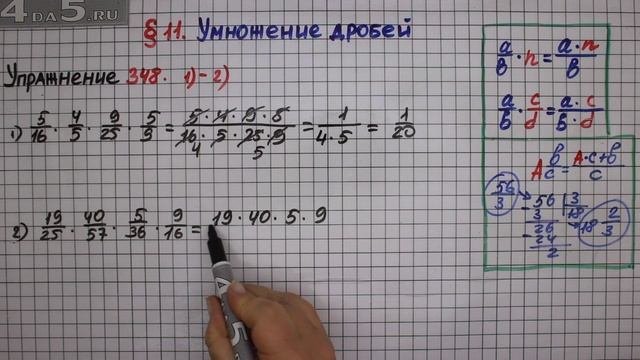 4 DA 5.RU
§ 11. Умножение дробей
Упражнение 348. 1)-2)
1) 5/16 · 4/5 · 9/25 · 5/9 = 5·4·9·5/16·5·25·9 = 1/4·5 = 1/20
4 5
2) 19/25 · 40/57 · 5/36 · 9/16 = 19·40·5·9
a/b · n = a·n/b
a/b · c/d = a·c/b·d
A b/c = A·c+b/c
56/3
56 | 3
- 3 | 18
26
- 24
2
18 2/3